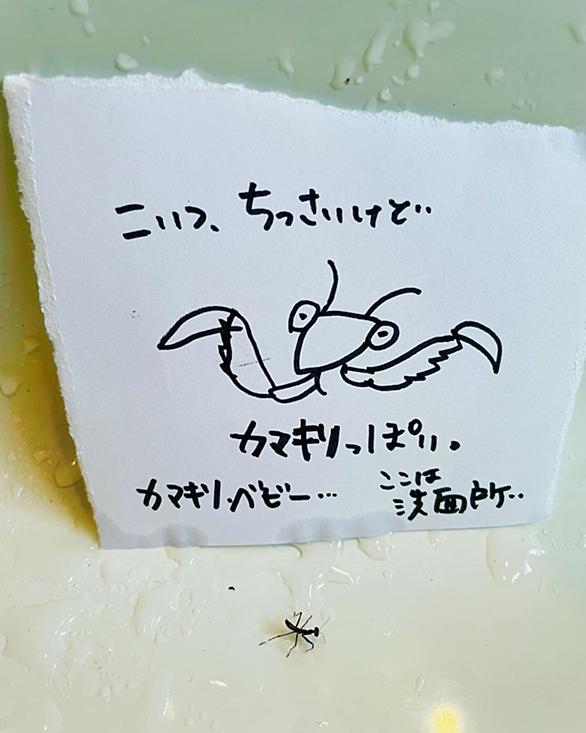 こいつ、ちっさいけど‥
カマキリっぽい。
カマキリベビー…
ここは
洗面所‥